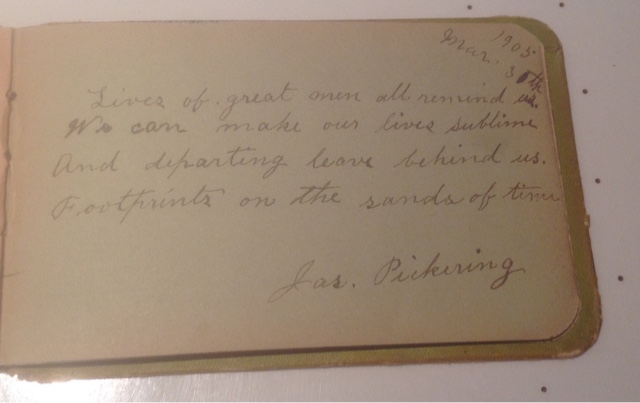 1905
Mar. 30th
Lives of great men all remind us.
We can make our lives sublime
And departing leave behind us.
Footprints on the sands of time
Jas. Pickering